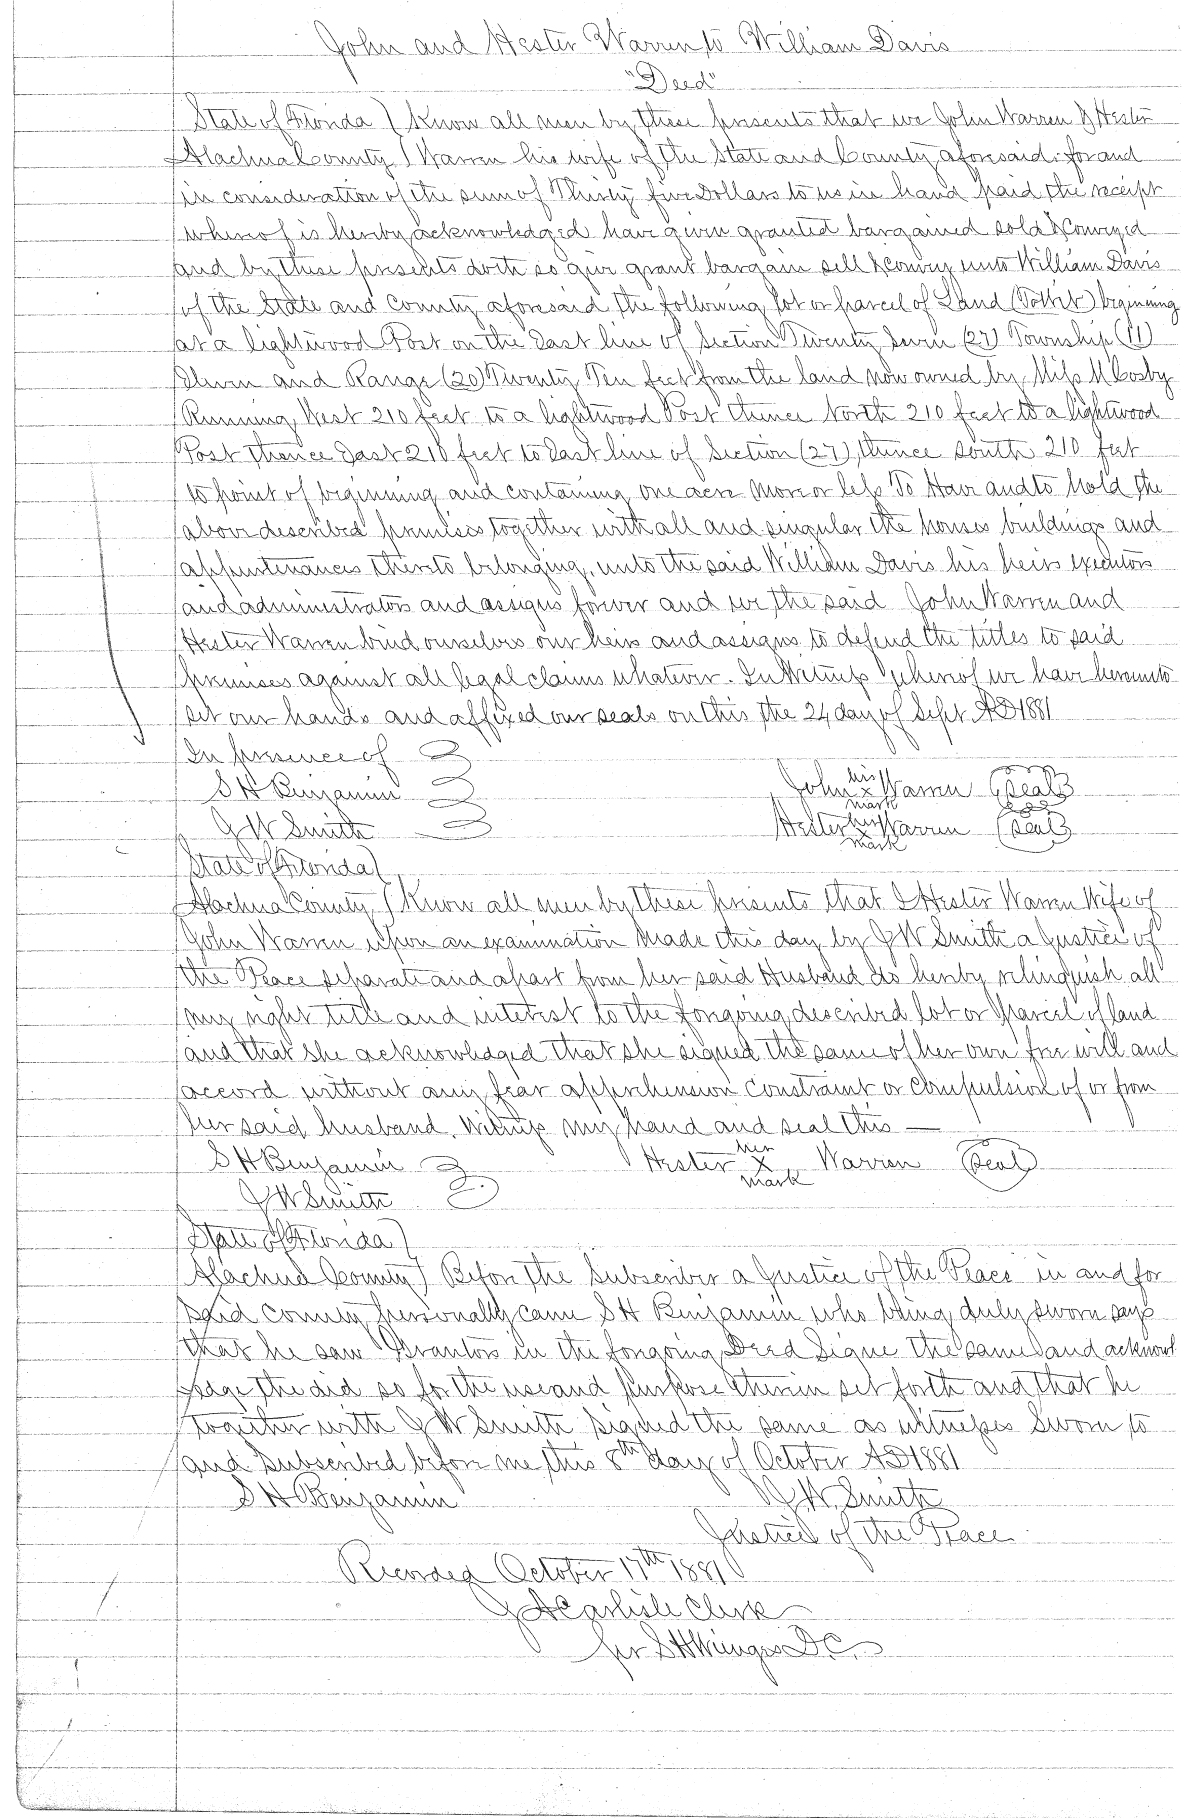 John and Hester Warren to William Davis
"Deed"
State of Florida } Know all men by these presents that we John Warren & Hester
Alachua County } Warren his wife of the State and County aforesaid for and
in consideration of the sum of Thirty five Dollars to us in hand paid the receipt
whereof is hereby acknowledged have given granted bargained sold & Conveyed
and by these presents doth so give grant bargain sell & convey unto William Davis
of the State and County aforesaid the following lot or parcel of Land (To Wit) beginning
at a lightwood Post on the East line of Section Twenty Seven (27) Township (11)
Eleven and Range (20) Twenty Ten feet from the land now owned by Miss M Cosby
Running West 210 feet to a lightwood Post thence North 210 feet to a lightwood
Post thence East 210 feet to East line of Section (27), thence South 210 feet
to point of beginning and containing one acre More or less To Have and to hold the
above described premises together with all and singular the houses buildings and
appurtenances thereto belonging, unto the said William Davis his heirs executors
and administrators and assigns forever and we the said John Warren and
Hester Warren bind ourselves our heirs and assigns to defend the titles to said
premises against all legal claims whatever. In Witness whereof we have hereunto
set our hands and affixed our seals on this the 24 day of Sept AD 1881
In presence of
S H Benjamin John his x mark Warren (Seal)
J W Smith Hester her x mark Warren (Seal)
State of Florida }
Alachua County } Know all men by these presents that I Hester Warren Wife of
John Warren upon an examination Made this day by J W Smith a Justice of
the Peace separate and apart from her said Husband do hereby relinquish all
my right title and interest to the forgoing described lot or Parcel of land
and that she acknowledged that she signed the same of her own free will and
accord without any fear apprehension Constraint or Compulsion of or from
her said husband. Witness my hand and seal this —
S H Benjamin Hester her X mark Warren (Seal)
J W Smith
State of Florida }
Alachua County } Before the Subscriber a Justice of the Peace in and for
said County personally came S H Benjamin who being duly sworn says
that he saw Grantors in the forgoing Deed Signe the same and acknowl
edge the did so for the use and purpose therein set forth and that he
together with J W Smith Signed the same as witnesses Sworn to
and Subscribed before me this 8th day of October AD 1881
S H Benjamin J. W. Smith
Justice of the Peace
Recorded October 17th 1881
J A Carlisle Clerk
per S H D.C.